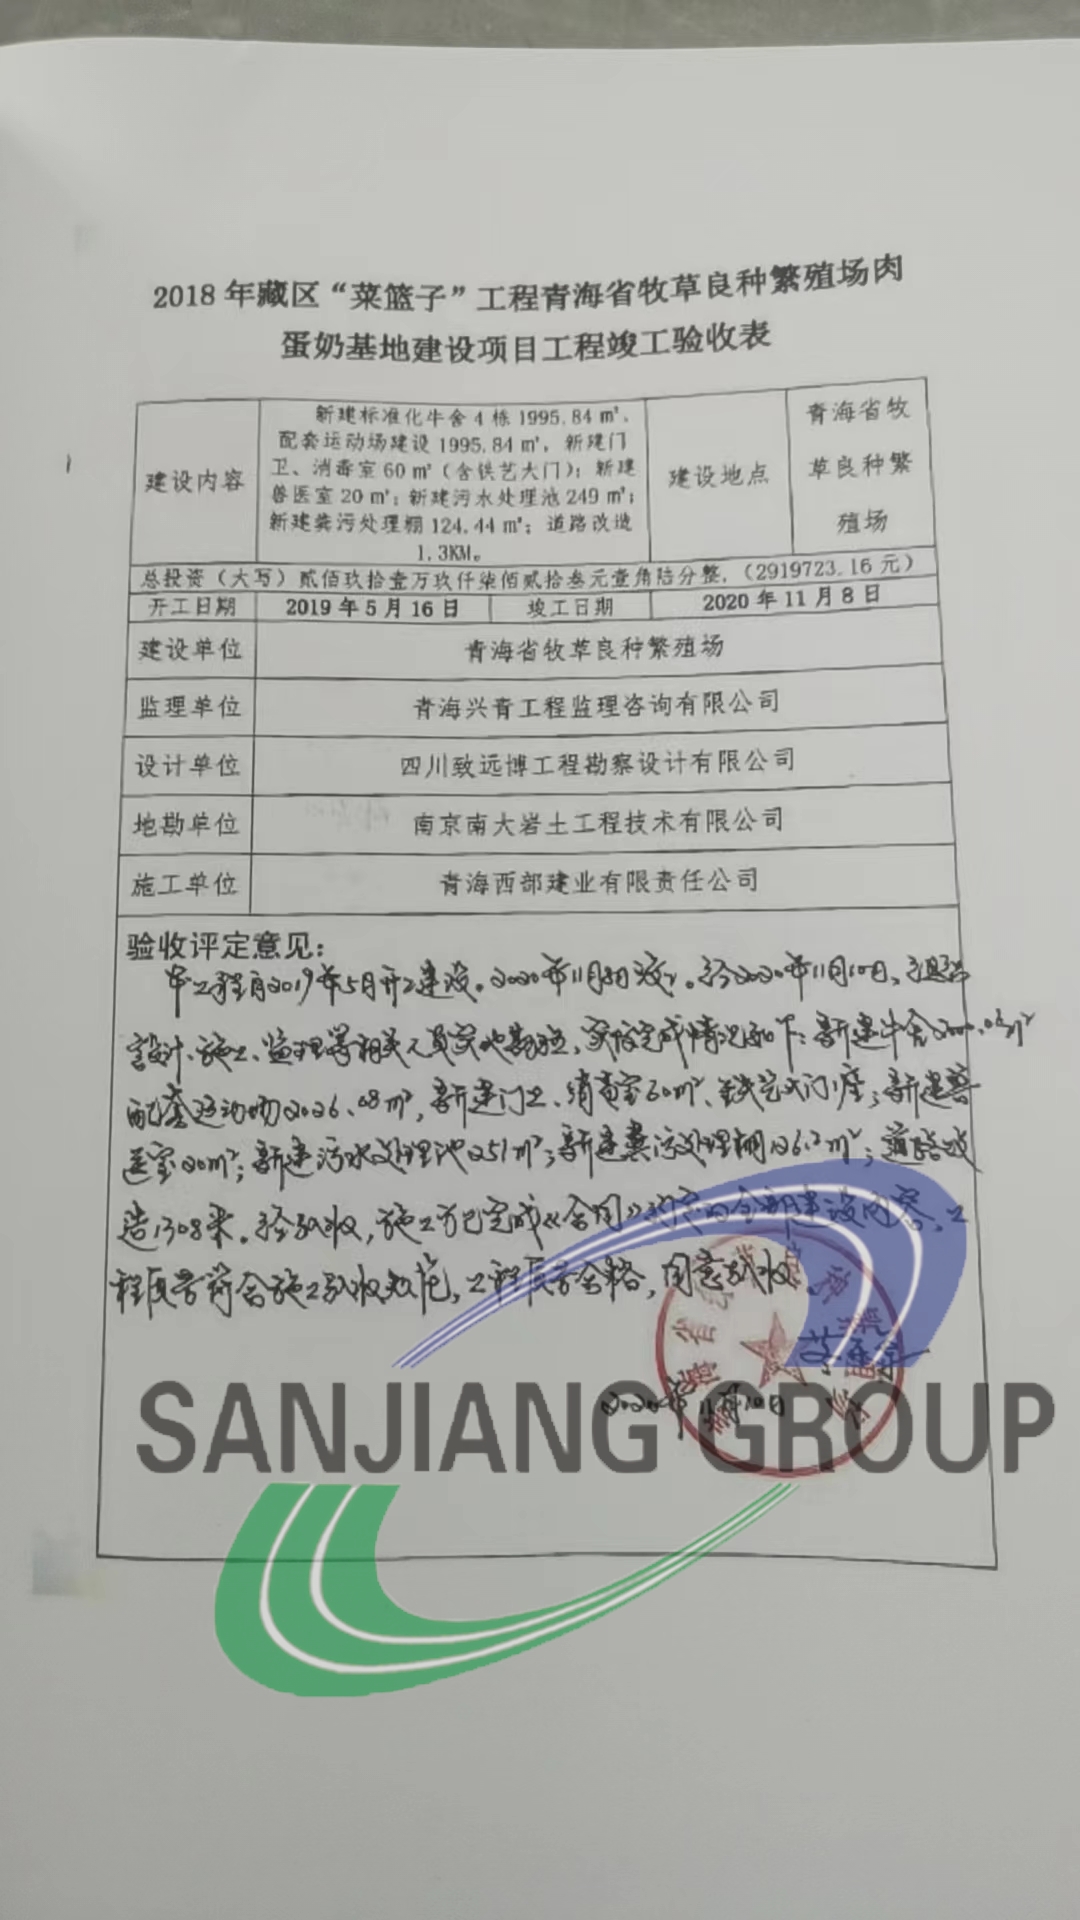 2018年藏区“菜篮子”工程青海省牧草良种繁殖场肉
蛋奶基地建设项目工程竣工验收表
建设内容
新建标准化牛舍4栋1995.84㎡,
配套运动场建设1995.84㎡,新建门
卫、消毒室60㎡(含铁艺大门);新建
兽医室20㎡;新建污水处理池249㎡;
新建粪污处理棚124.44㎡;道路改造
1.3KM。
建设地点
青海省牧
草良种繁
殖场
总投资(大写)贰佰玖拾壹万玖仟柒佰贰拾叁元壹角陆分整,(2919723.16元)
开工日期 2019年5月16日 竣工日期 2020年11月8日
建设单位 青海省牧草良种繁殖场
监理单位 青海兴青工程监理咨询有限公司
设计单位 四川致远博工程勘察设计有限公司
地勘单位 南京南大岩土工程技术有限公司
施工单位 青海西部建业有限责任公司
验收评定意见:
本工程自2019年5月开工建设。2020年11月8日竣工。于2020年11月10日,组织
设计、施工、监理等相关人员实地勘验,实际完成情况如下:新建牛舍
配套运动场2026.08㎡,新建门卫、消毒室60㎡、铁艺大门1座;新建兽
医室20㎡;新建污水处理池251㎡;新建粪污处理棚126.2㎡;道路改
造1308米。经验收,施工方已完成《合同》约定的全部建设内容,工
程质量符合施工验收规范,工程质量合格,同意验收。
2020年11月10日
SANJIANG GROUP